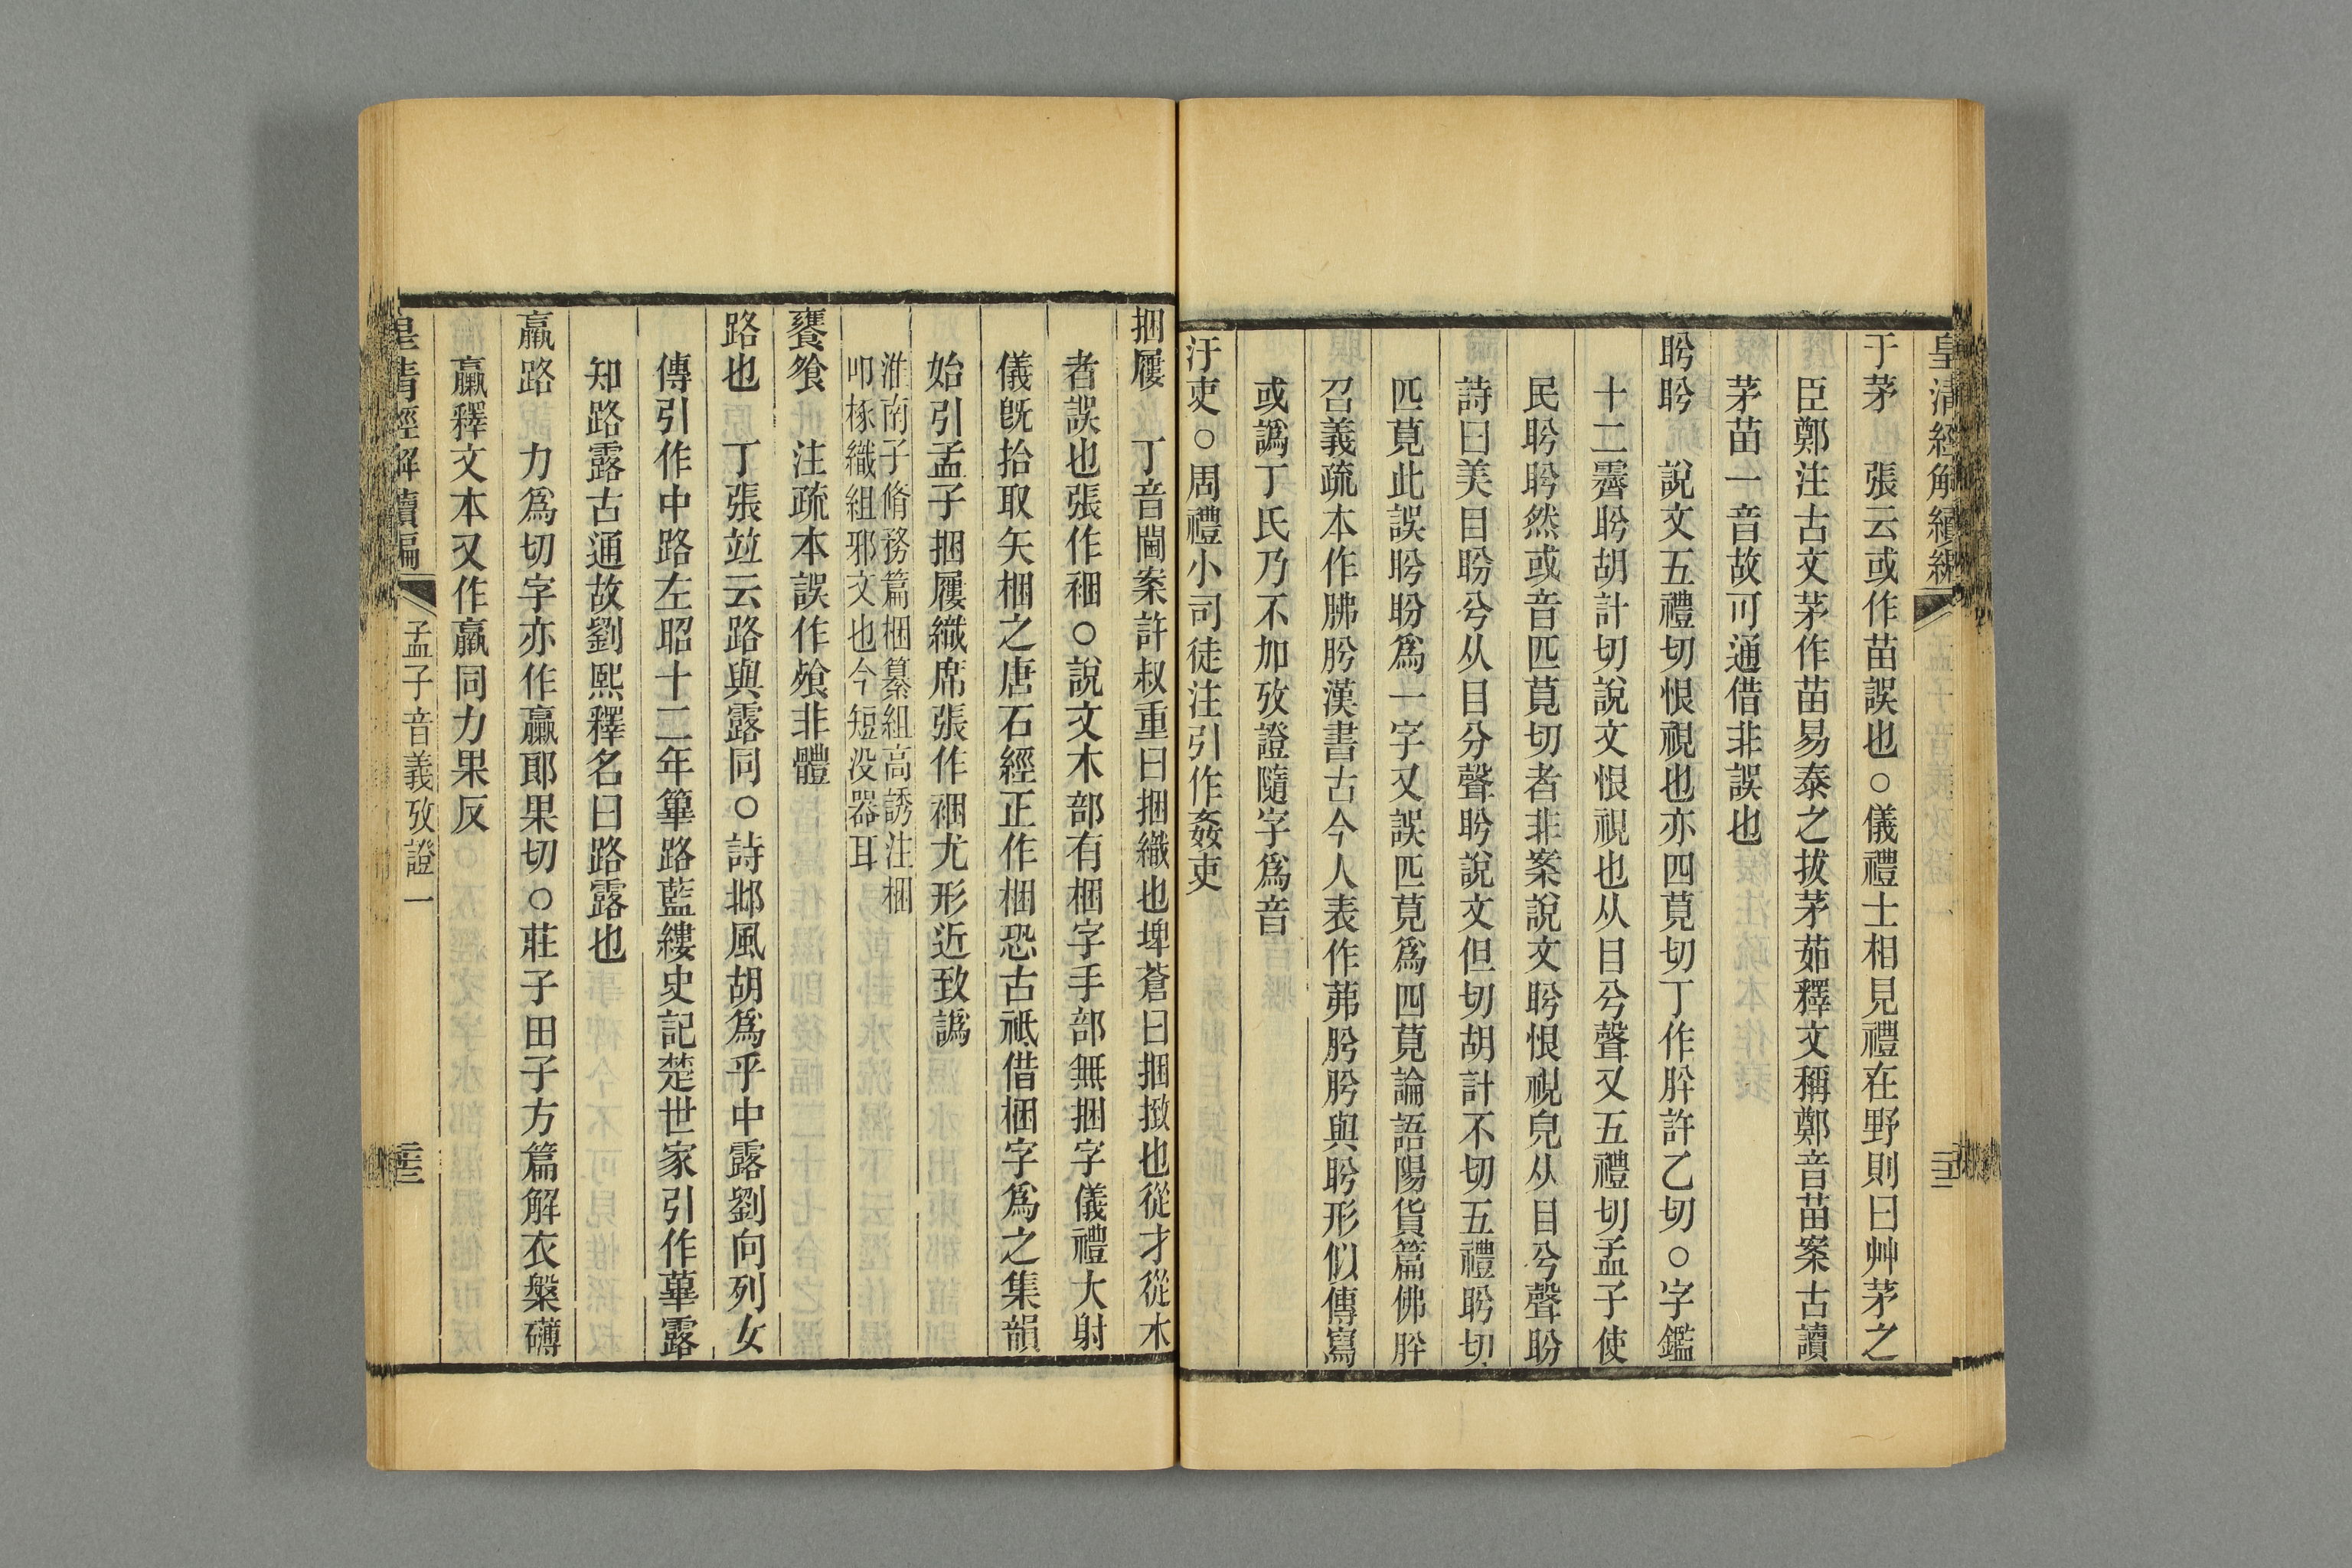 皇清經解續編
于茅　張云或作苗誤也○儀禮士相見禮在野則曰艸茅之
臣鄭注古文茅作苗易泰之拔茅茹釋文稱鄭音苗案古讀
茅苗一音故可通借非誤也
盻盻　說文五禮切恨視也亦四莧切丁作肸許乙切○字鑑
十二霽盻胡計切說文恨視也从目兮聲又五禮切孟子使
民盻盻然或音匹莧切者非案說文盻恨視皃从目兮聲盼
詩曰美目盼兮从目分聲盻說文但切胡計不切五禮盻切
匹莧此誤盻盼爲一字又誤匹莧爲四莧論語陽貨篇佛肸
召義疏本作胇肹漢書古今人表作茀肹肹與盻形似傳寫
或譌丁氏乃不加攷證隨字爲音
汙吏○周禮小司徒注引作姦吏
捆屨　丁音閫案許叔重曰捆織也埤蒼曰捆㨖也從才從木
者誤也張作裍○說文木部有梱字手部無捆字儀禮大射
儀旣拾取矢梱之唐石經正作梱恐古祗借梱字爲之集韻
始引孟子捆屨織席張作裍尤形近致譌
淮南子脩務篇梱纂組高誘注梱
叩椓織組邪文也今短没器耳
饔飧　注疏本誤作飱非體
路也　丁張竝云路與露同○詩邶風胡爲乎中露劉向列女
傳引作中路左昭十二年篳路藍縷史記楚世家引作蓽露
知路露古通故劉熙釋名曰路露也
羸路　力爲切字亦作臝郎果切○莊子田子方篇解衣槃礴
臝釋文本又作羸同力果反
皇清經解續編
孟子音義攷證一